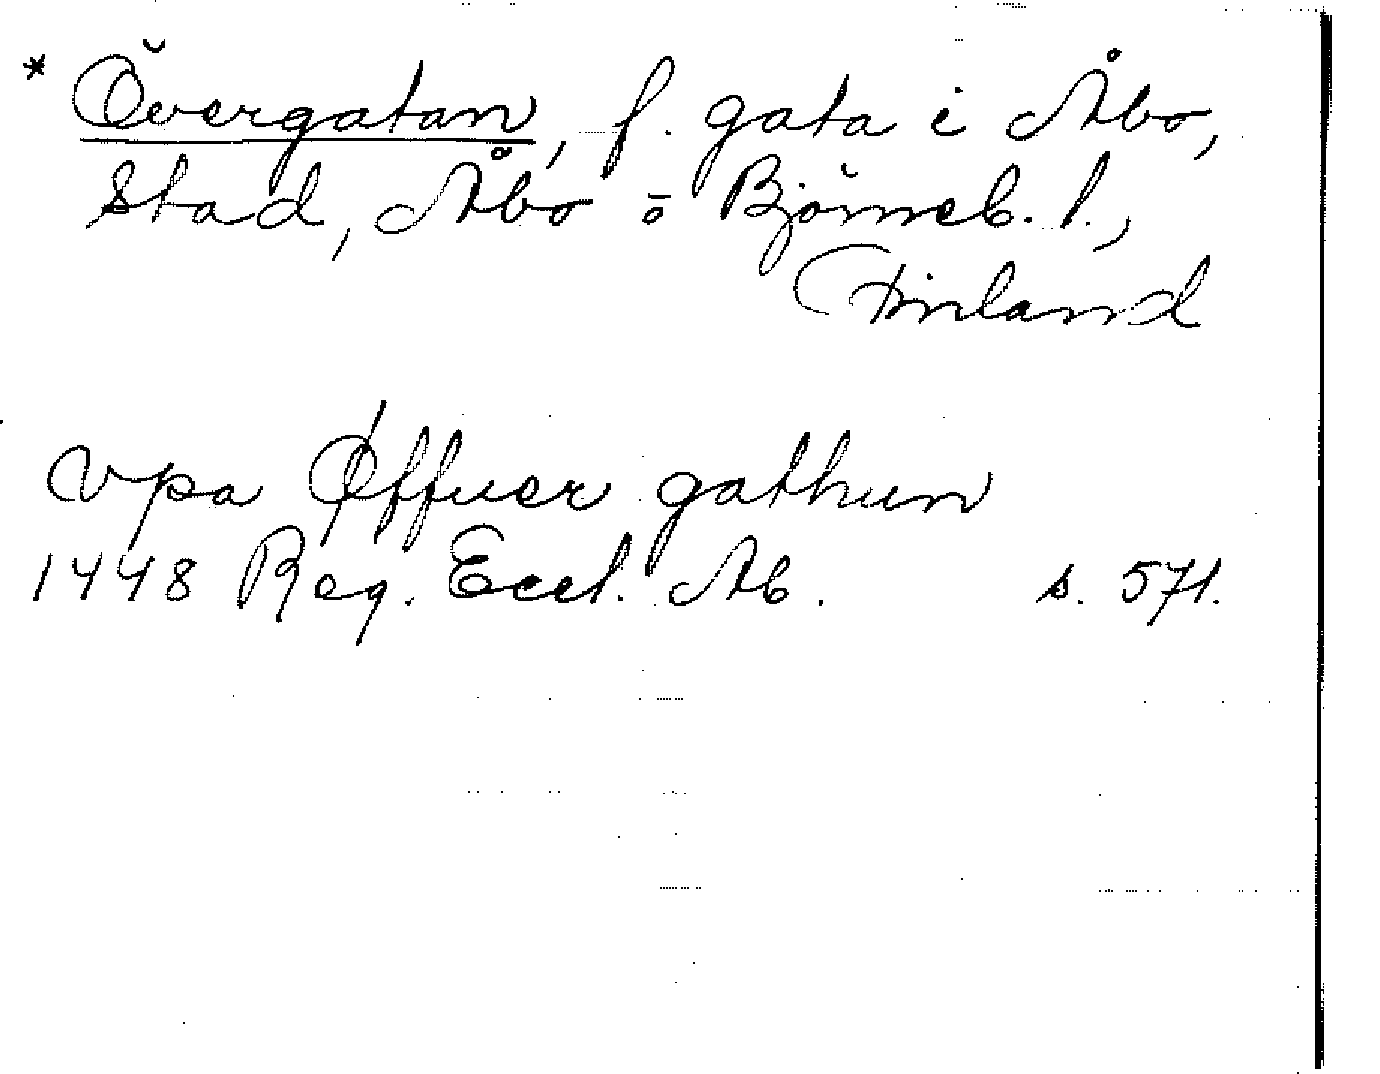 * Övergatan, f. gata i Åbo,
stad, Åbo o Björneb. l.,
Finland
vpa Øffuer gathun
1448 Reg. Eccl. Ab. s. 571.